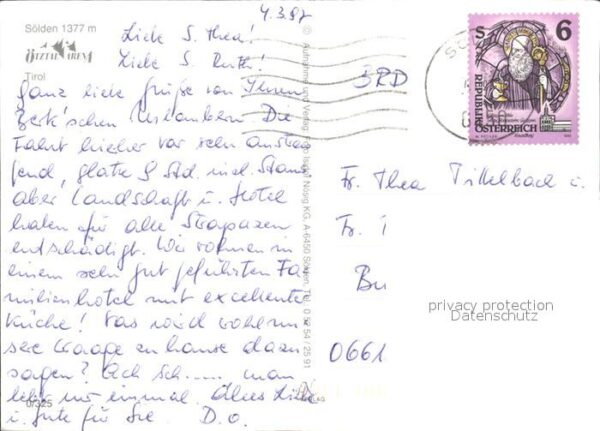 4.3.97
Sölden 1377 m
ÖTZTAL ARENA
Tirol
Liebe S. Thea!
Liebe S. Ruth!
Ganz liebe Grüße von Ihren
Urlaubern. Die
Fahrt hierher war sehr anstren
gend, glatte 9 Std. incl. Staus
aber Landschaft u. Hotel
haben für alle Strapazen
entschädigt. Wir wohnen in
einem sehr gut geführten Fa
milienhotel mit excellenter
Küche! Was wird wohl un
sere Waage zu hause dazu
sagen? Ach Sch..... man
lebt nur einmal. Alles Liebe
u. Gute für Sie. D.O.
6/325
© Aufnahme und Verlag Nosig KG, A-6450 Sölden, Tel. 0 52 54 / 25 91
BRD
S 6
REPUBLIK
ÖSTERREICH
Fr. Thea u.
Fr.
Bu
0661
privacy protection
Datenschutz